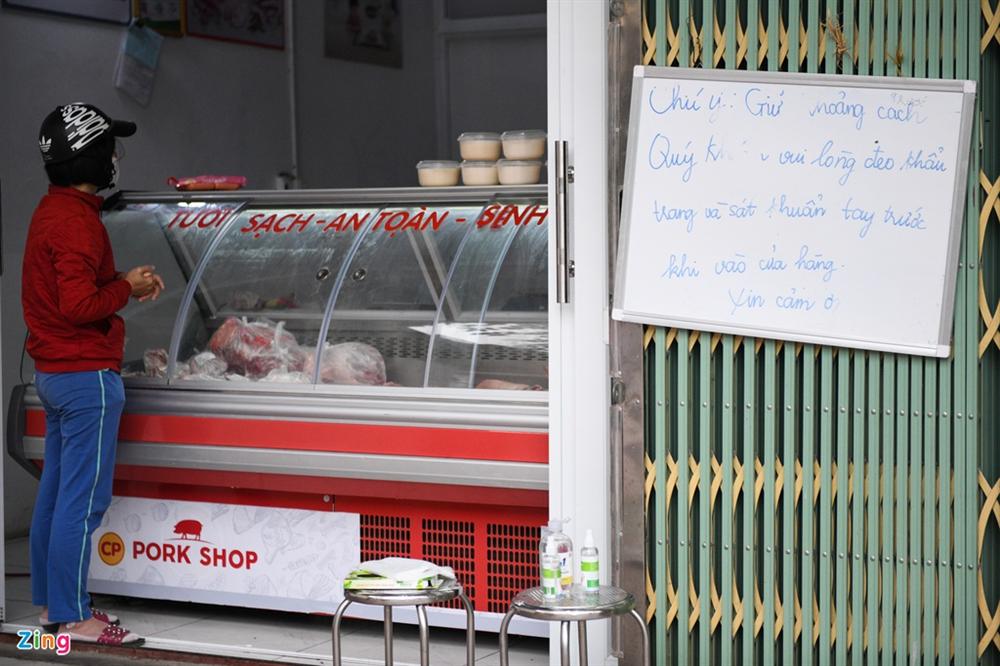 Chú ý: Giữ khoảng cách
Quý vui lòng đeo khẩu
trang và sát khuẩn tay trước
khi vào cửa hàng.
Xin cảm ơn
TƯƠI SẠCH - AN TOÀN -
adidas
CP PORK SHOP
Zing